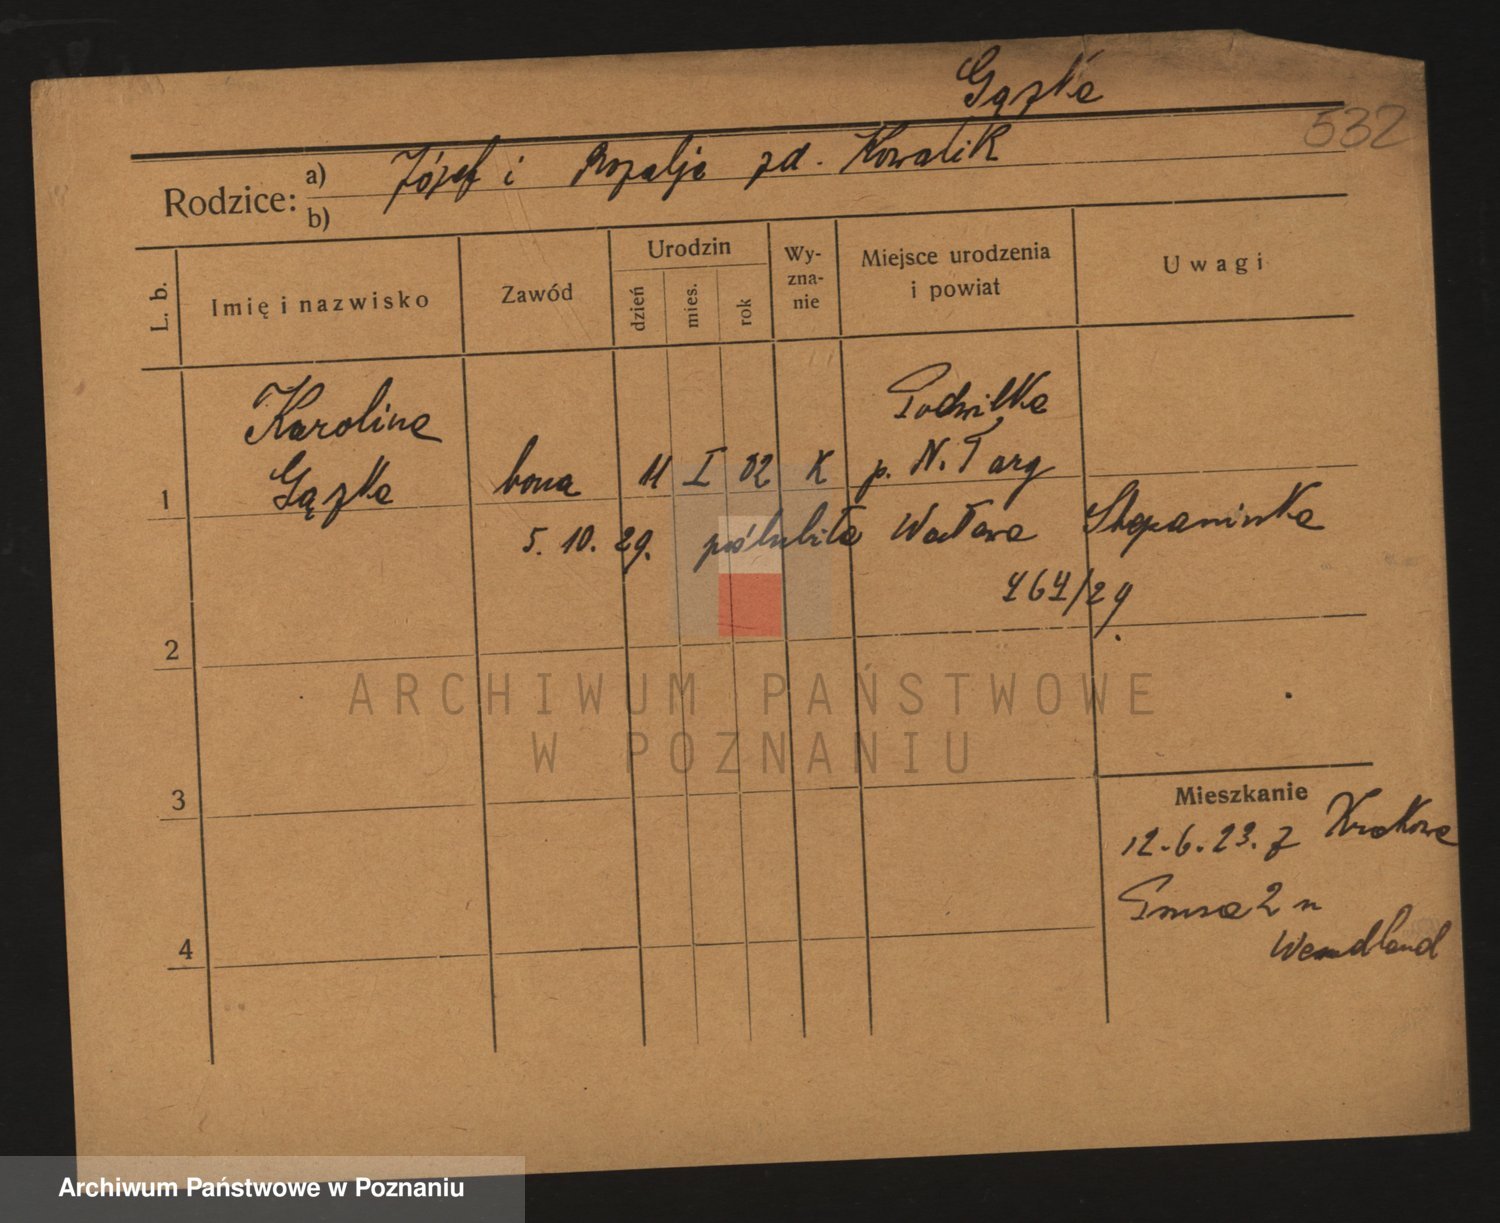 Gązka
532
Rodzice: a) Józef i Rozalja zd. Kowalik
b)
L. b.
Imię i nazwisko
Zawód
Urodzin
dzień
mies.
rok
Wy-
zna-
nie
Miejsce urodzenia
i powiat
Uwagi
Karolina
Gązka
Podwilka
1 bona 11 I 02 K p. N. Targ
5. 10. 29. poślubiła Wacława Szczepaniaka
464/29
2
3
4
Mieszkanie
12.6.23. z Krakowa
2 u
Wendland
ARCHIWUM PAŃSTWOWE
W POZNANIU
Archiwum Państwowe w Poznaniu